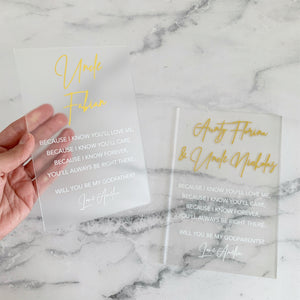 Uncle
Fabian
BECAUSE I KNOW YOU'LL LOVE ME,
BECAUSE I KNOW YOU'LL CARE,
BECAUSE I KNOW FOREVER,
YOU'LL ALWAYS BE RIGHT THERE.
WILL YOU BE MY GODFATHER?
Love
Aunty
& Uncle Nicholas
BECAUSE I KNOW YOU'LL LOVE ME,
BECAUSE I KNOW YOU'LL CARE,
BECAUSE I KNOW FOREVER,
YOU'LL ALWAYS BE RIGHT THERE.
WILL YOU BE MY GODPARENTS?
Love